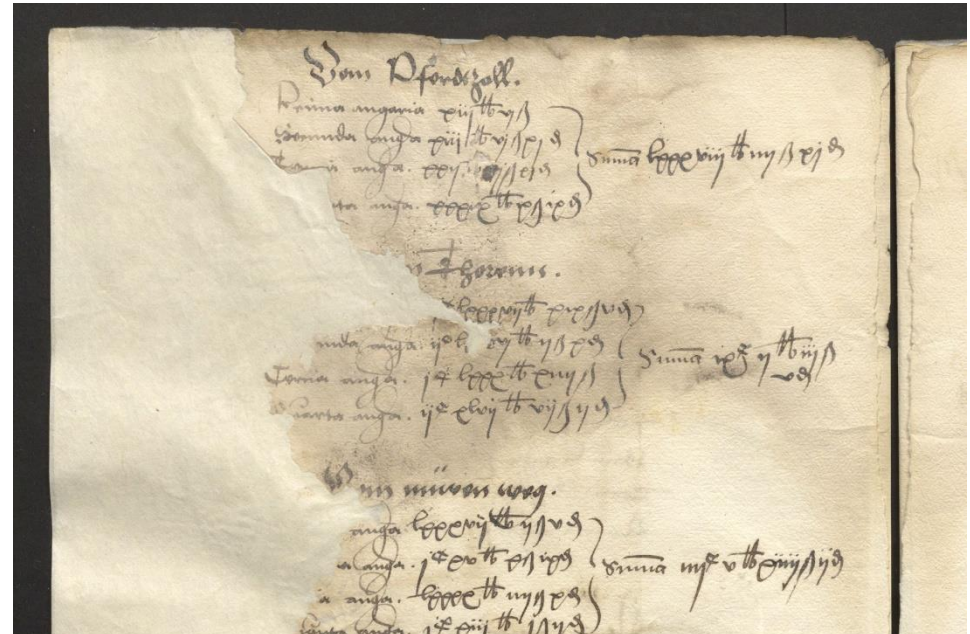 Vom Pfordtzoll.
Prima angaria xiij lb vij ß
Secunda anga xiij lb vj ß xj d
anga. xxij
rta anga. xxxix lb ix ß ix d
Summa lxxxviij lb iiij ß xj d
Thorenn.
jc lxxxvij lb xix ß v d
nda anga. ijc lb ij ß x d
Tercia anga. jc lxxx lb xiiij ß
Quarta anga. ijc xlvij lb vij ß ij d
Summa ixc ij lb iij ß
v d
müren weg.
anga. lxxxvij lb ij ß v d
a anga. jc xv lb x ß ix d
ia anga. lxxxx lb iiij ß x d
arta anga. jc xiij lb
Summa iiijc v lb ß ij d